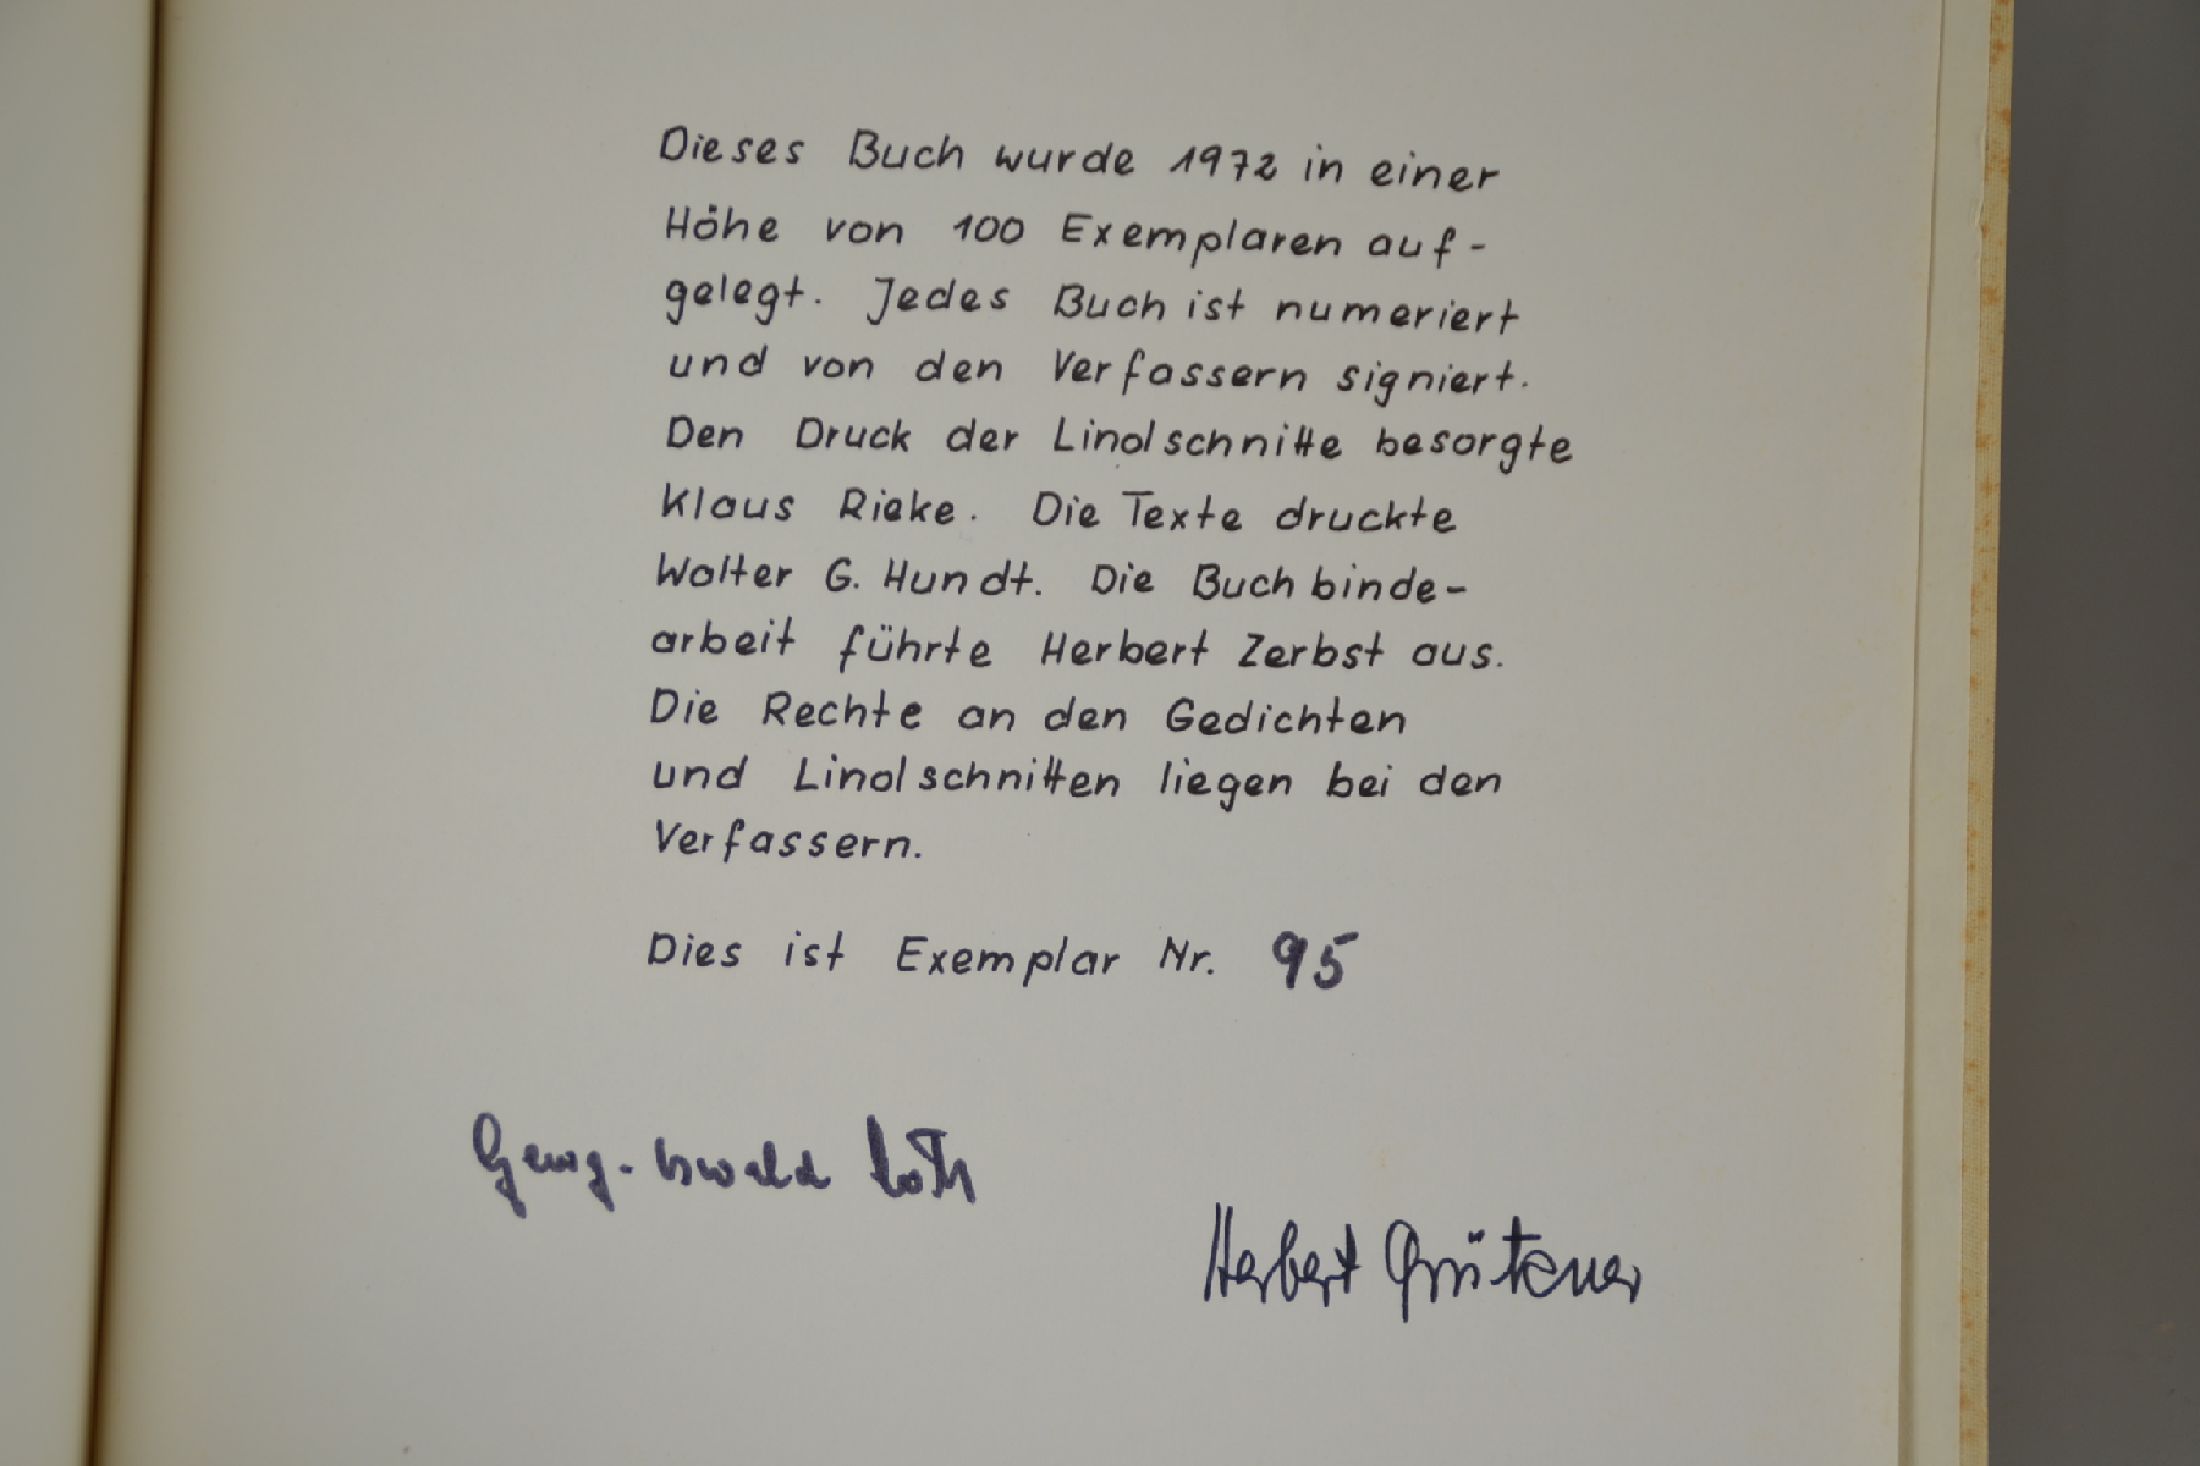 Dieses Buch wurde 1972 in einer
Höhe von 100 Exemplaren auf-
gelegt. Jedes Buch ist numeriert
und von den Verfassern signiert.
Den Druck der Linolschnitte besorgte
Klaus Rieke. Die Texte druckte
Walter G. Hundt. Die Buchbinde-
arbeit führte Herbert Zerbst aus.
Die Rechte an den Gedichten
und Linolschnitten liegen bei den
Verfassern.
Dies ist Exemplar Nr. 95
Georg-Oswald
Herbert